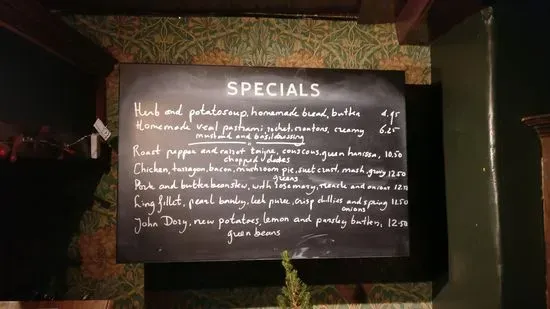 SPECIALS
Herb and potato soup, homemade bread, butter 4.95
Homemade veal pastrami, rocket, croutons, creamy 6.25
mustard and basil dressing
Roast pepper and carrot tajine, couscous, green harissa, 10.50
chopped dates
Chicken, tarragon, bacon, mushroom pie, suet crust, mash, gravy 12.50
greens
Pork and butterbean stew, with rosemary, treacle and onions 12.
Ling fillet, pearl barley, leek puree, crisp chillies and spring 12.50
onions
John Dory, new potatoes, lemon and parsley butter, 12.50
green beans